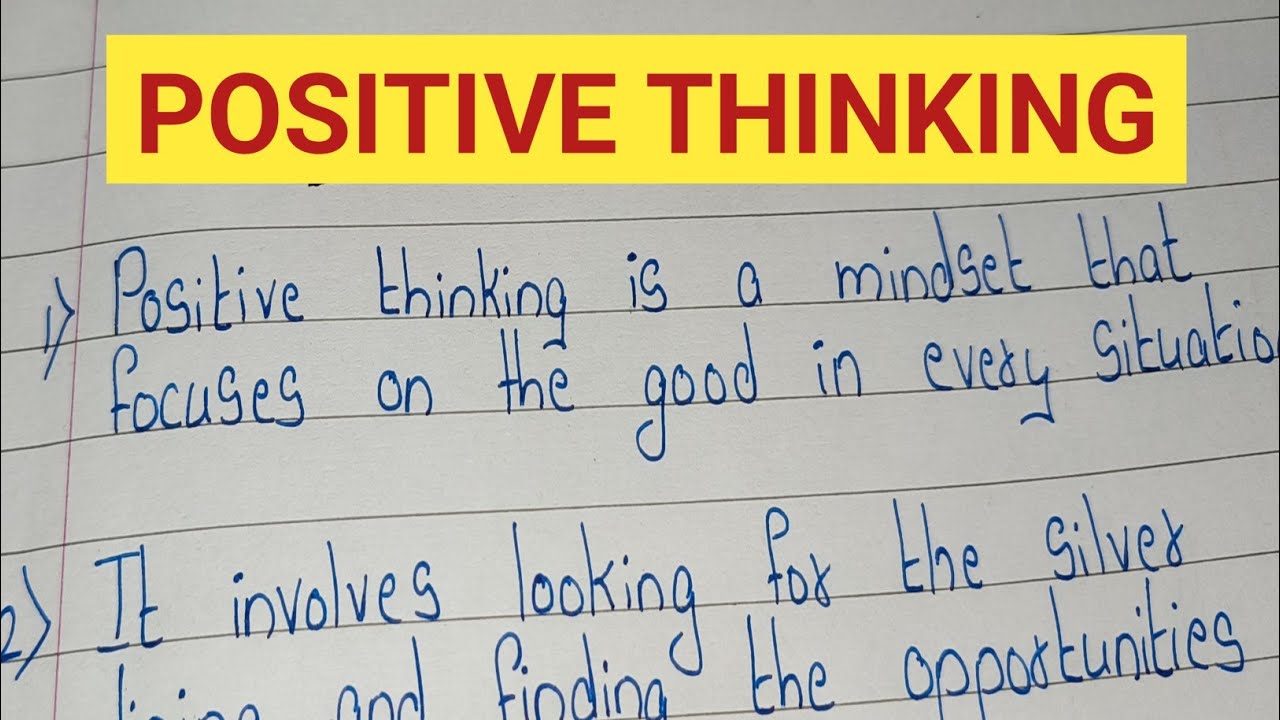 POSITIVE THINKING
1) Positive thinking is a mindset that
focuses on the good in every situatio
2) It involves looking for the silver
lining and finding the opportunities